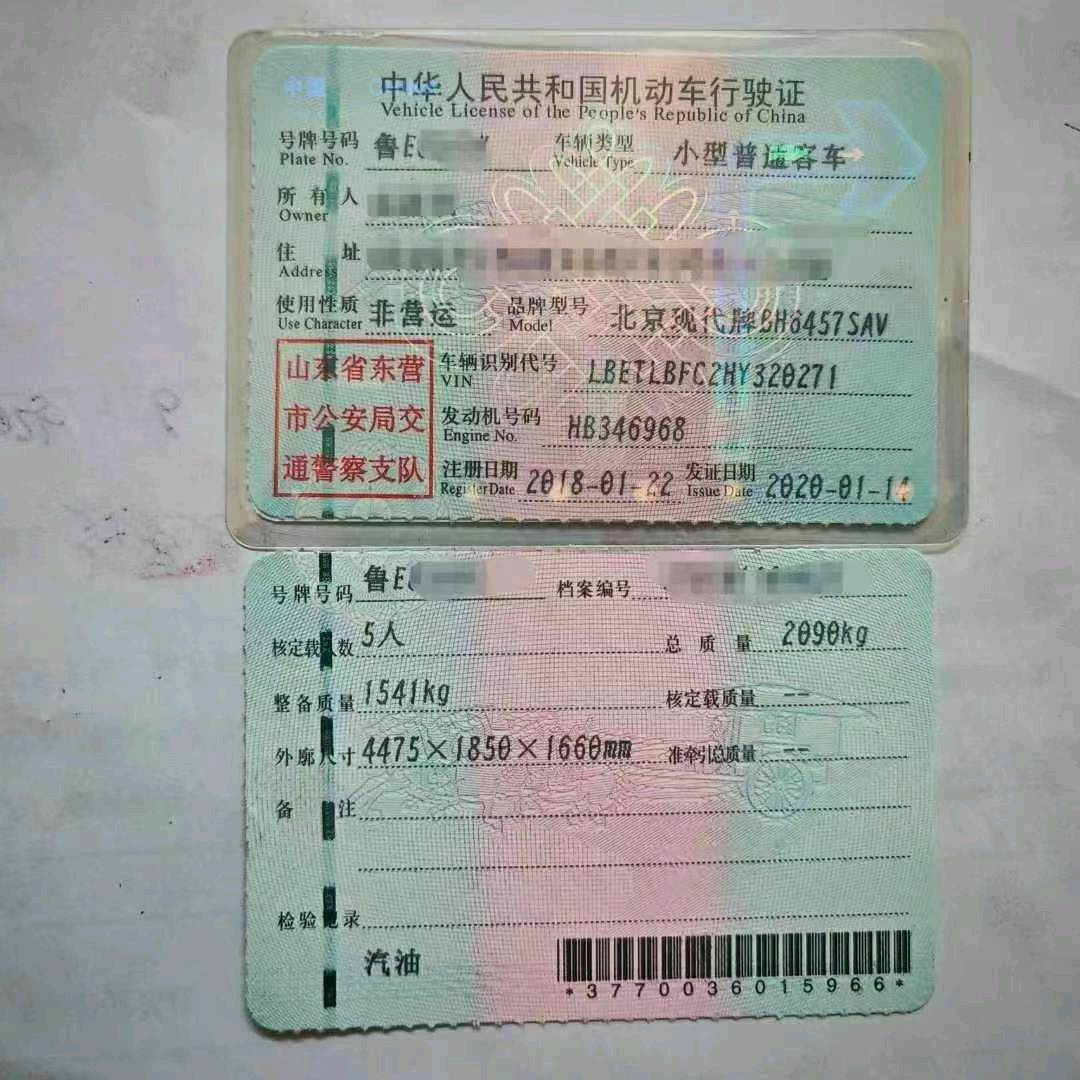 中华人民共和国机动车行驶证
Vehicle License of the People's Republic of China
号牌号码 鲁E 车辆类型 小型普通客车
Plate No. Vehicle Type
所有人
Owner
住址
Address
使用性质 非营运 品牌型号 北京现代牌BH6457SAV
Use Character Model
山东省东营 车辆识别代号 LBETLBFC2HY320271
VIN
市公安局交 发动机号码 HB346968
Engine No.
通警察支队 注册日期 2018-01-22 发证日期 2020-01-14
Register Date Issue Date
号牌号码 鲁E 档案编号
核定载人数 5人 总质量 2090kg
整备质量 1541kg 核定载质量 --
外廓尺寸 4475×1850×1660mm 准牵引总质量 --
备注
检验记录
汽油
*3770036015966*